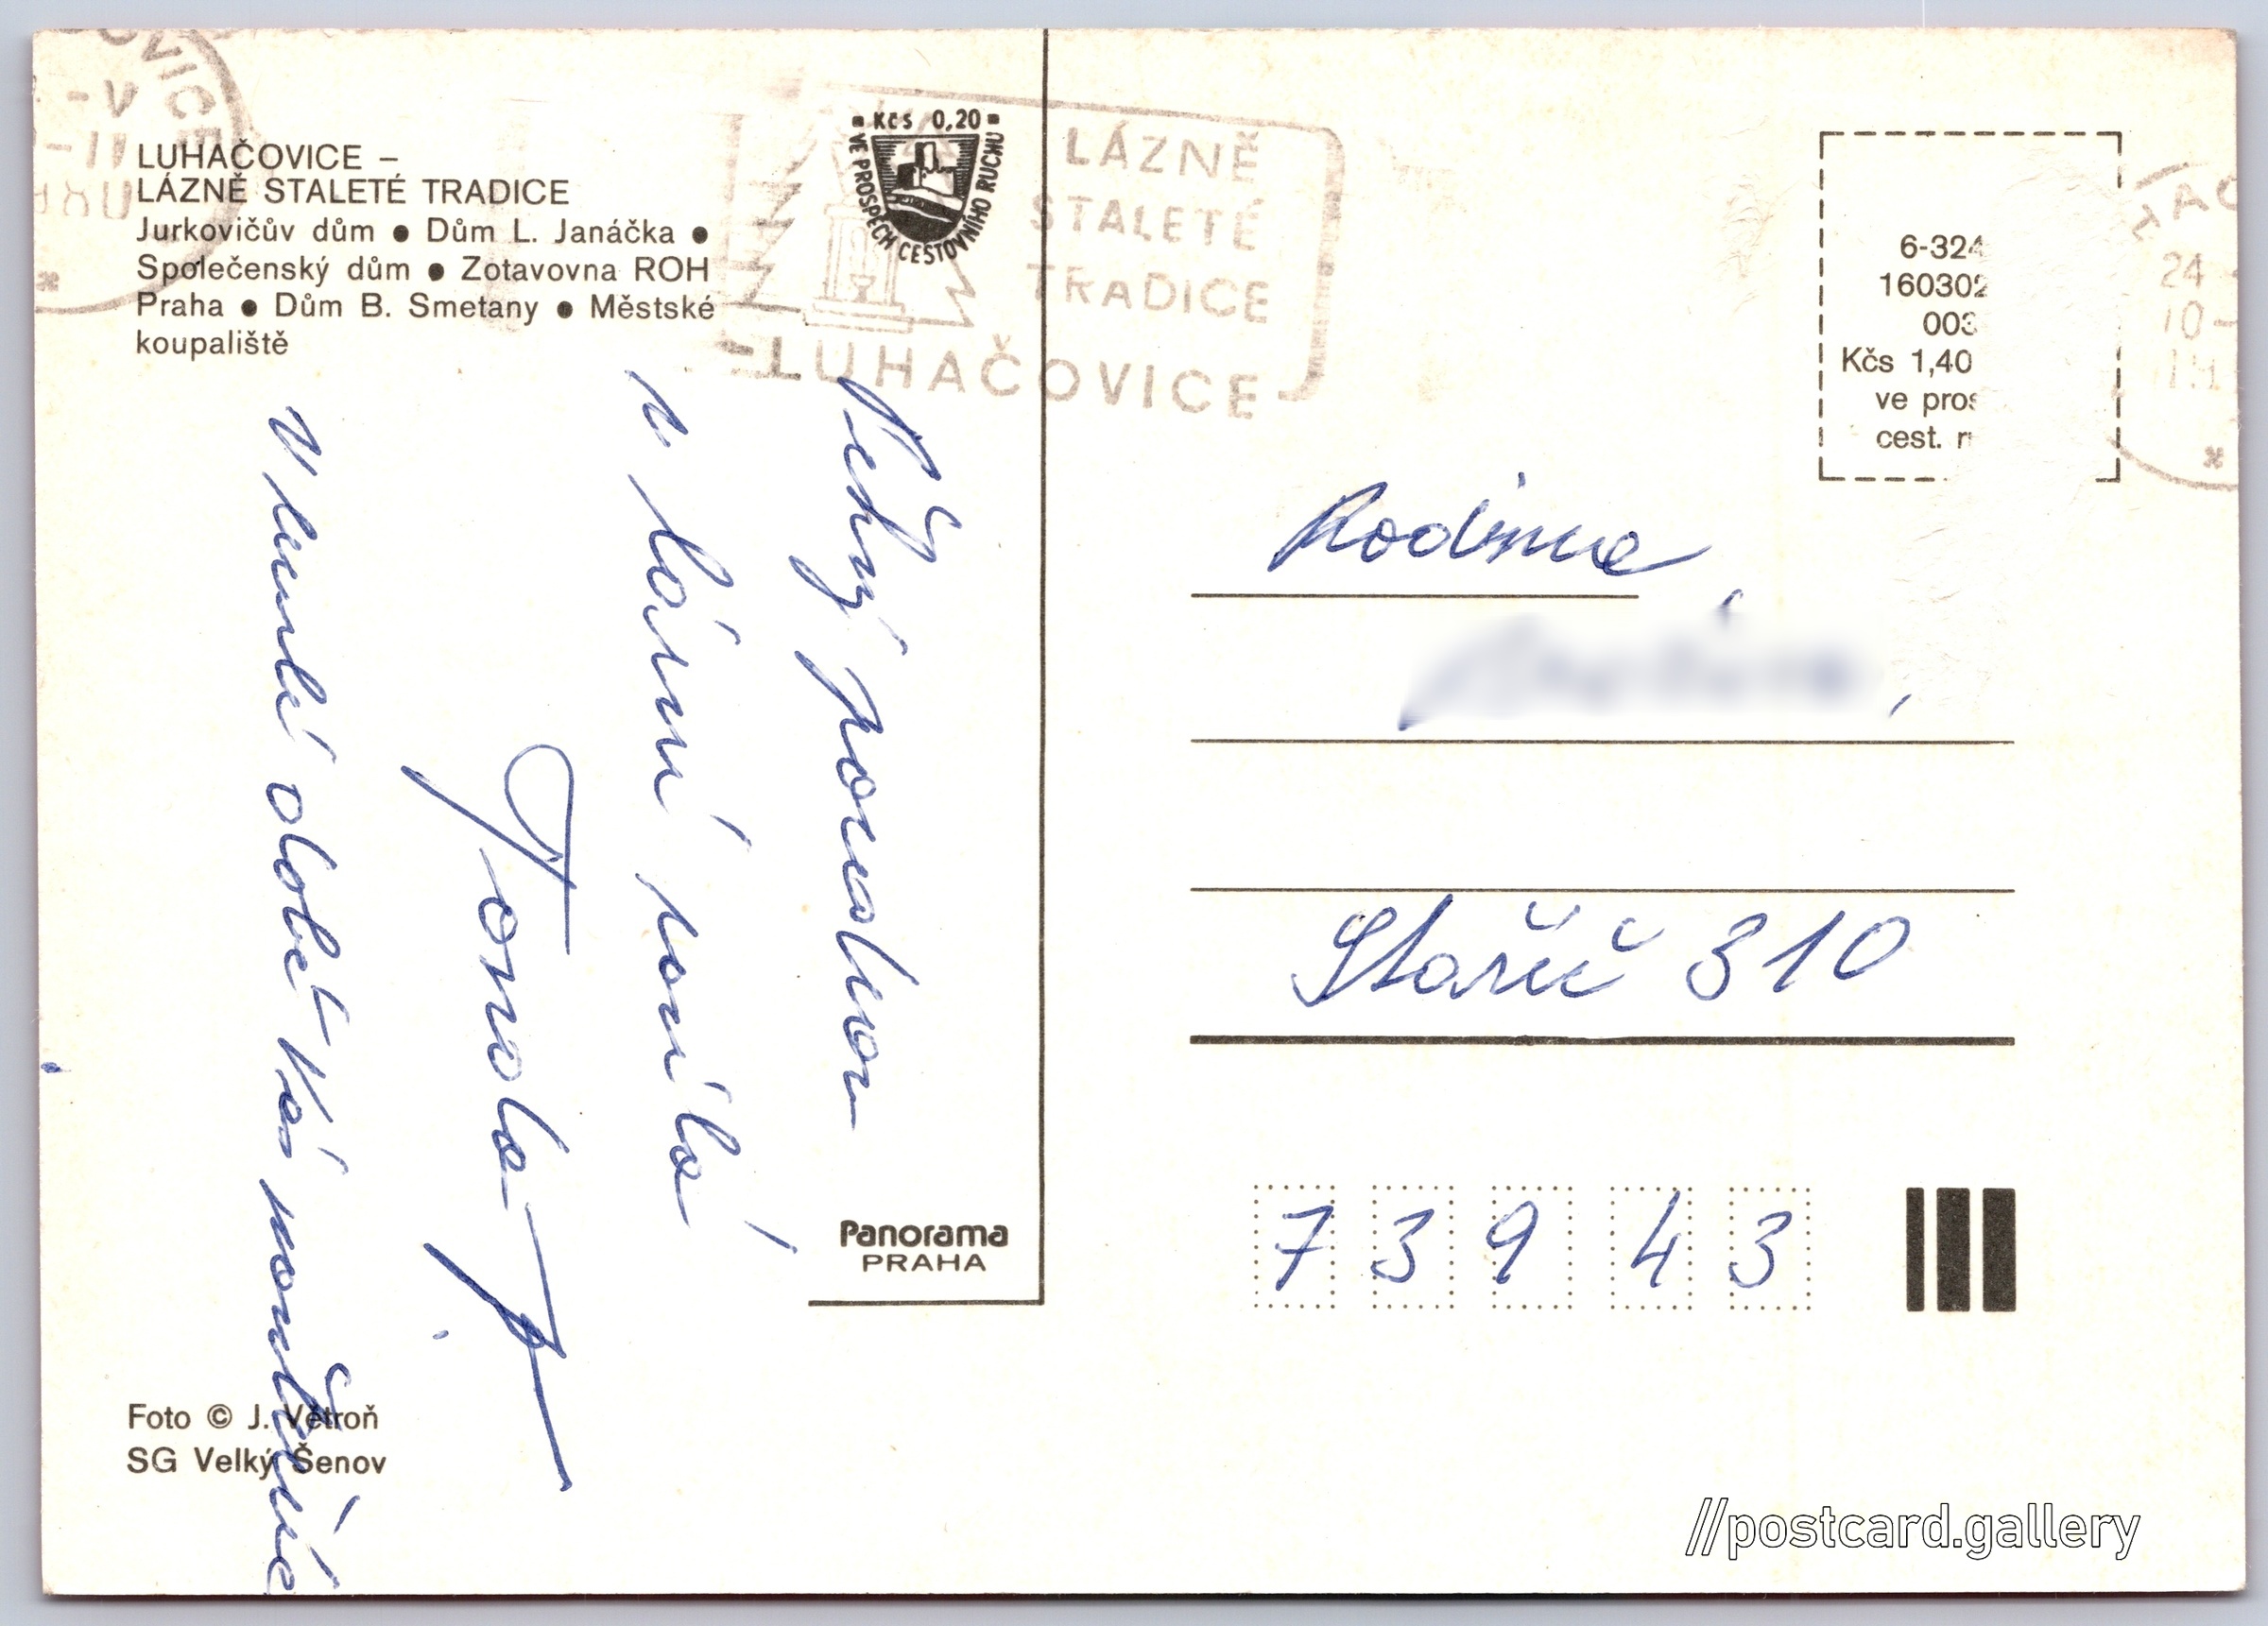 LUHAČOVICE –
LÁZNĚ STALETÉ TRADICE
Jurkovičův dům ● Dům L. Janáčka ●
Společenský dům ● Zotavovna ROH
Praha ● Dům B. Smetany ● Městské
koupaliště
Kčs 0,20
VE PROSPĚCH CESTOVNÍHO RUCHU
LÁZNĚ
STALETÉ
TRADICE
LUHAČOVICE
Pěkný pozdrav
z lázní posílá
Tonda
V kvesně
6-324
160302
003
Kčs 1,40
ve pros
cest. r
24
10-
Rodina
Staříč 310
739 43
Panorama
PRAHA
Foto © J. Větroň
SG Velký Šenov
//postcard.gallery